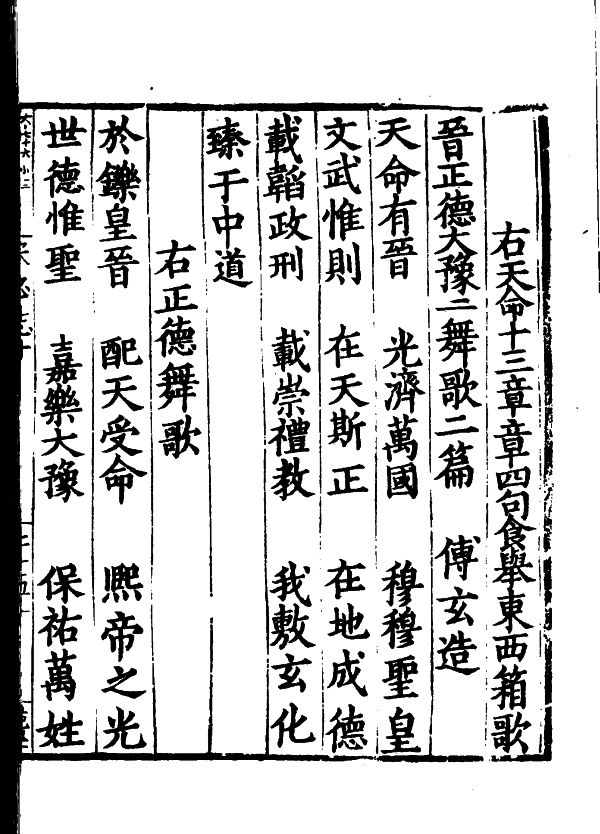 右天命十三章章四句食舉東西箱歌
晉正德大豫二舞歌二篇 傅玄造
天命有晉 光濟萬國 穆穆聖皇
文武惟則 在天斯正 在地成德
載韜政刑 載崇禮教 我敷玄化
臻于中道
右正德舞歌
於鑠皇晉 配天受命 熈帝之光
世德惟聖 嘉樂大豫 保祐萬姓